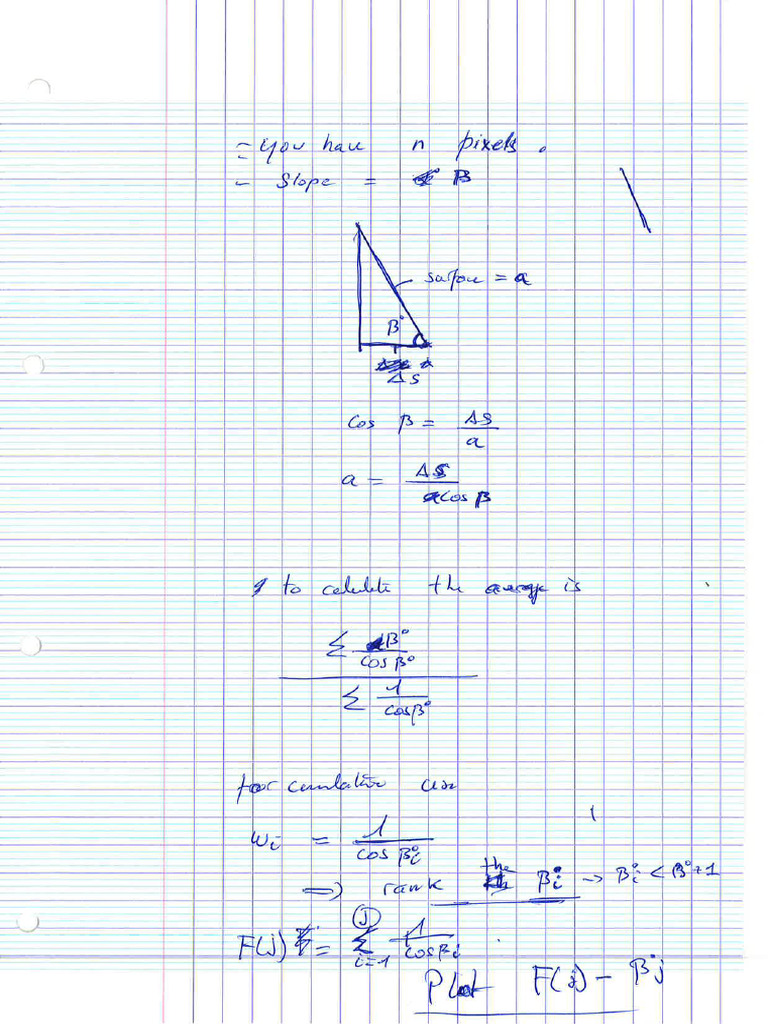 = you have n pixels.
- Slope = β
surface = a
β°
Δs
cos β = ΔS / a
a = ΔS / cos β
to calculate the average is
Σ β° / cos β°
Σ 1 / cos β°
for cumulative use
wi = 1 / cos βi
the
=> rank βi -> βi < β°+1
F(j) = Σ i=1 j 1 / cos βi
Plot F(j) - βj